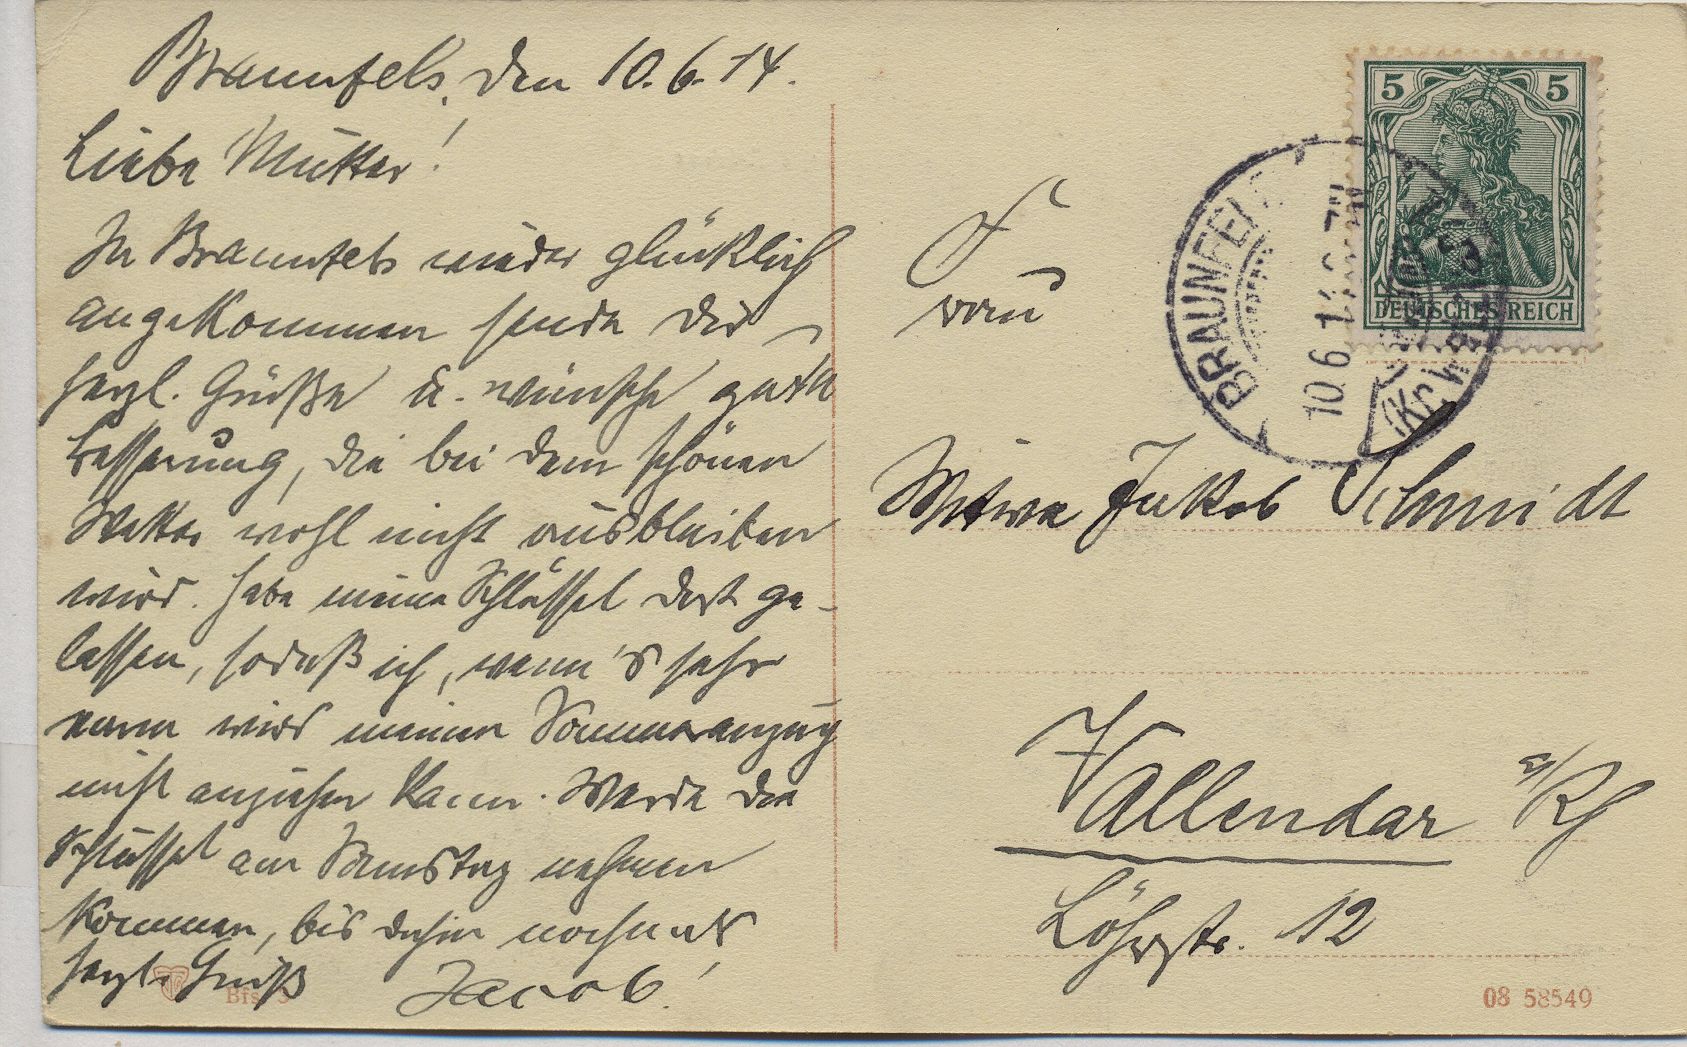 Braunfels, den 10.6.14.
Liebe Mutter!
In Braunfels wieder glücklich
angekommen sende Dir
herzl. Grüße u. wünsche gute
Besserung, die bei dem schönen
Wetter wohl nicht ausbleiben
wird. Habe meine Schlüssel dort ge-
lassen, sodaß ich, wenn's sehr
warm wird meinen Sommeranzug
nicht anziehen kann. Werde die
Schlüssel am Samstag nehmen
kommen, bis dahin nochmals
herzl. Gruß Jacob!
Frau
Witwe Jakob Schmidt
Vallendar a/Rh
Löhrstr. 12
5 5
DEUTSCHES REICH
BRAUNFELS
10.6.14.
(Kr. WETZLAR)
Bfs 3
08 58549